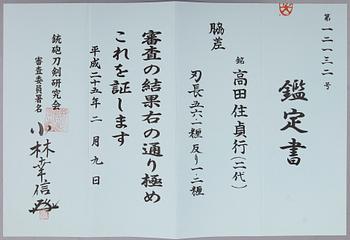 第一二一三二号
鑑定書
脇差
銘 高田住貞行(二代)
刃長五六一糎 反り一二糎
審査の結果右の通り極め
これを証します
平成二十五年 二月 九日
銃砲刀剣研究会
審査委員署名
小林幸信